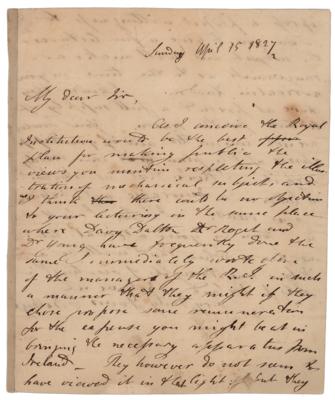 Sunday April 15 1827
My dear Sir,
As I conceive the Royal
Institution would be the best
plan for making public the
views you mention respecting the illus
tration of mechanical subjects and
as I think there could be no objection
to your lecturing in the same place
where Davy Dalton Dr Roget and
Dr Young have frequently done the
same I immediately wrote to one
of the managers of the Inst. in such
a manner that they might if they
chose propose some remuneration
for the expense you might be at in
bringing the necessary apparatus from
Ireland – They however do not seem to
have viewed it in that light but they